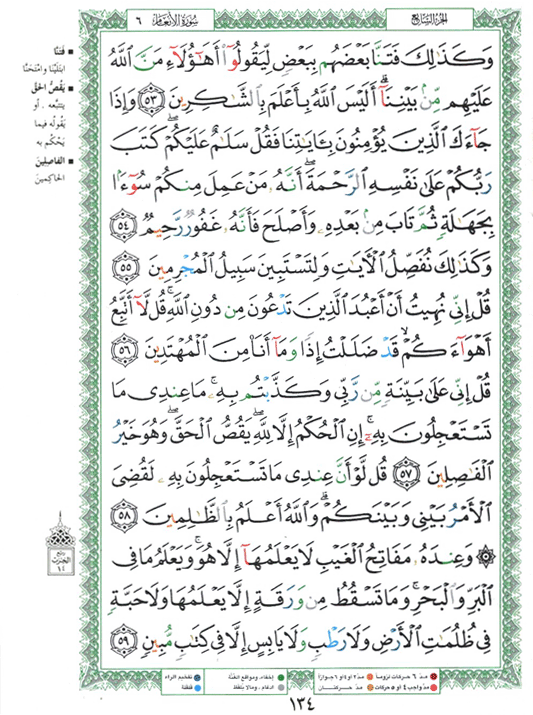 الجزء السابع
سورة الأنعام ٦
وَكَذَٰلِكَ فَتَنَّا بَعْضَهُم بِبَعْضٍ لِّيَقُولُوٓا۟ أَهَٰٓؤُلَآءِ مَنَّ ٱللَّهُ
عَلَيْهِم مِّنۢ بَيْنِنَآ ۗ أَلَيْسَ ٱللَّهُ بِأَعْلَمَ بِٱلشَّٰكِرِينَ ﴿٥٣﴾ وَإِذَا
جَآءَكَ ٱلَّذِينَ يُؤْمِنُونَ بِـَٔايَٰتِنَا فَقُلْ سَلَٰمٌ عَلَيْكُمْ ۖ كَتَبَ
رَبُّكُمْ عَلَىٰ نَفْسِهِ ٱلرَّحْمَةَ ۖ أَنَّهُۥ مَنْ عَمِلَ مِنكُمْ سُوٓءًۢا
بِجَهَٰلَةٍ ثُمَّ تَابَ مِنۢ بَعْدِهِۦ وَأَصْلَحَ فَأَنَّهُۥ غَفُورٌ رَّحِيمٌ ﴿٥٤﴾
وَكَذَٰلِكَ نُفَصِّلُ ٱلْءَايَٰتِ وَلِتَسْتَبِينَ سَبِيلُ ٱلْمُجْرِمِينَ ﴿٥٥﴾
قُلْ إِنِّى نُهِيتُ أَنْ أَعْبُدَ ٱلَّذِينَ تَدْعُونَ مِن دُونِ ٱللَّهِ ۚ قُل لَّآ أَتَّبِعُ
أَهْوَآءَكُمْ ۙ قَدْ ضَلَلْتُ إِذًا وَمَآ أَنَا۠ مِنَ ٱلْمُهْتَدِينَ ﴿٥٦﴾
قُلْ إِنِّى عَلَىٰ بَيِّنَةٍ مِّن رَّبِّى وَكَذَّبْتُم بِهِۦ ۚ مَا عِندِى مَا
تَسْتَعْجِلُونَ بِهِۦٓ ۚ إِنِ ٱلْحُكْمُ إِلَّا لِلَّهِ ۖ يَقُصُّ ٱلْحَقَّ ۖ وَهُوَ خَيْرُ
ٱلْفَٰصِلِينَ ﴿٥٧﴾ قُل لَّوْ أَنَّ عِندِى مَا تَسْتَعْجِلُونَ بِهِۦ لَقُضِىَ
ٱلْأَمْرُ بَيْنِى وَبَيْنَكُمْ ۗ وَٱللَّهُ أَعْلَمُ بِٱلظَّٰلِمِينَ ﴿٥٨﴾
۞ وَعِندَهُۥ مَفَاتِحُ ٱلْغَيْبِ لَا يَعْلَمُهَآ إِلَّا هُوَ ۚ وَيَعْلَمُ مَا فِى
ٱلْبَرِّ وَٱلْبَحْرِ ۚ وَمَا تَسْقُطُ مِن وَرَقَةٍ إِلَّا يَعْلَمُهَا وَلَا حَبَّةٍ
فِى ظُلُمَٰتِ ٱلْأَرْضِ وَلَا رَطْبٍ وَلَا يَابِسٍ إِلَّا فِى كِتَٰبٍ مُّبِينٍ ﴿٥٩﴾
■ فَتَنَّا
ابتَلَيْنا وامْتَحَنَّا
■ يَقُصُّ الحَقَّ
يَتَّبِعُه . أو
يَقُولُه فيما
يَحْكُم به
■ الفاصِلِينَ
الحاكِمينَ
ربع
الحزب
١٤
مدّ ٦ حركات لزوماً
مدّ ٢ أو ٤ أو ٦ جوازاً
إخفاء، ومواقع الغُنَّة
تفخيم الراء
مدّ واجب ٤ أو ٥ حركات
مدّ حركتان
ادغام، ومالا يُلفظ
قلقلة
١٣٤